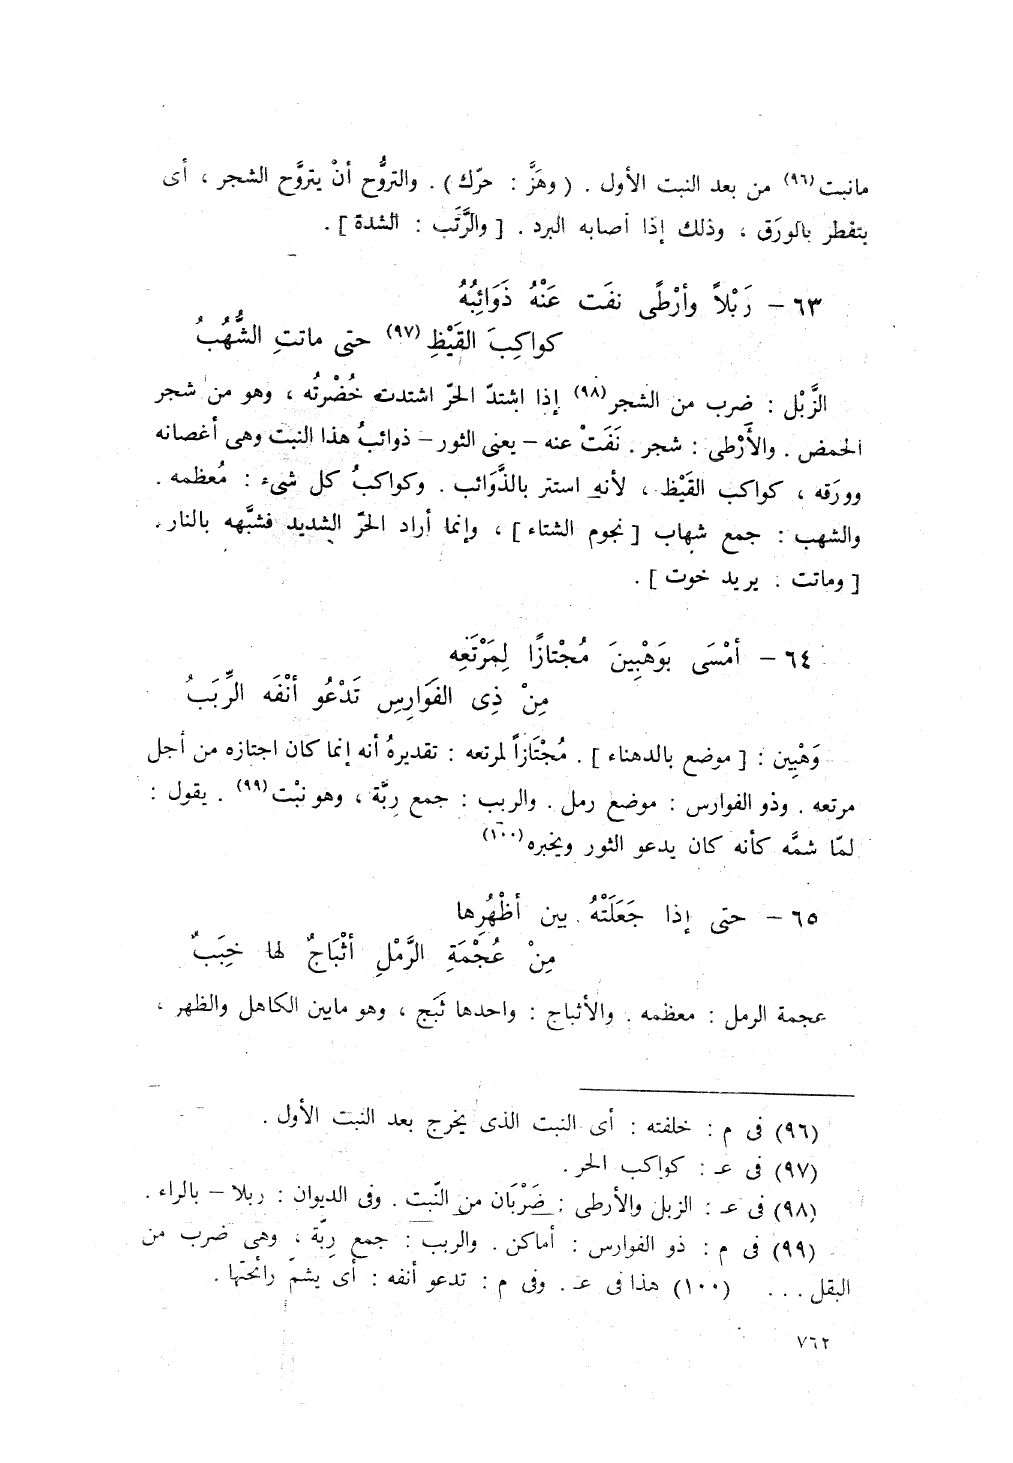 مانبت (٩٦) من بعد النبت الأول . ( وهَزَّ : حرّك ) . والتروُّح أنْ يتروَّح الشجر ، أى
يتفطر بالورَق ، وذلك إذا أصابه البرد . [ والرَّتَب : الشدة ] .
٦٣ – رَبْلاً وأرْطًى نفَت عَنْهُ ذَوَائِبُهُ
كواكِبَ القَيْظِ (٩٧) حتى ماتتِ الشُّهُبُ
الزَّبْل : ضرب من الشجر (٩٨) إذا اشتدّ الحرّ اشتدت خُضْرتُه ، وهو من شجر
الحمض . والأَرْطى : شجر . نَفَتْ عنه – يعنى الثور – ذوائبُ هذا النبت وهى أغصانه
وورَقه ، كواكب القَيْظ ، لأنه استتر بالذَّوَائب . وكواكبُ كل شىء : مُعظمه .
والشهب : جمع شهاب [ نجوم الشتاء ] ، وإنما أراد الحرّ الشديد فشبَّهه بالنار .
[ وماتت . يريد خوت ] .
٦٤ – أمْسَى بوَهْبِينَ مُجْتازًا لِمَرْتَعِه
مِنْ ذِى الفَوَارِسِ تَدْعُو أنْفَه الرِّبَبُ
وَهْبِين : [ موضع بالدهناء ] . مُجْتَازاً لمرتعه : تقديرهُ أنه إنما كان اجتازه من أجل
مرتعه . وذو الفوارس : موضع رمل . والربب : جمع رِبَّة ، وهو نبْت (٩٩) . يقول :
لمّا شمَّه كأنه كان يدعو الثور ويخبره (١٠٠)
٦٥ – حتى إذا جَعَلَتْهُ بين أظْهُرِها
مِنْ عُجْمَةِ الرَّمْلِ أثْباجٌ لها خِبَبٌ
عجمة الرمل : معظمه . والأثباج : واحدها ثَبَج ، وهو مابين الكاهل والظهر ،
(٩٦) فى م : خلفته : أى النبت الذى يخرج بعد النبت الأول .
(٩٧) فى عـ : كواكب الحر .
(٩٨) فى عـ : الزبل والأرطى : ضَرْبَان من النّبت . وفى الديوان : ربلا – بالراء .
(٩٩) فى م : ذو الفوارس : أماكن . والربب : جمع رِبَّة ، وهى ضرب من
البقل . . . (١٠٠) هذا فى عـ . وفى م : تدعو أنفه : أى يشمّ رائحتها .
٧٦٢